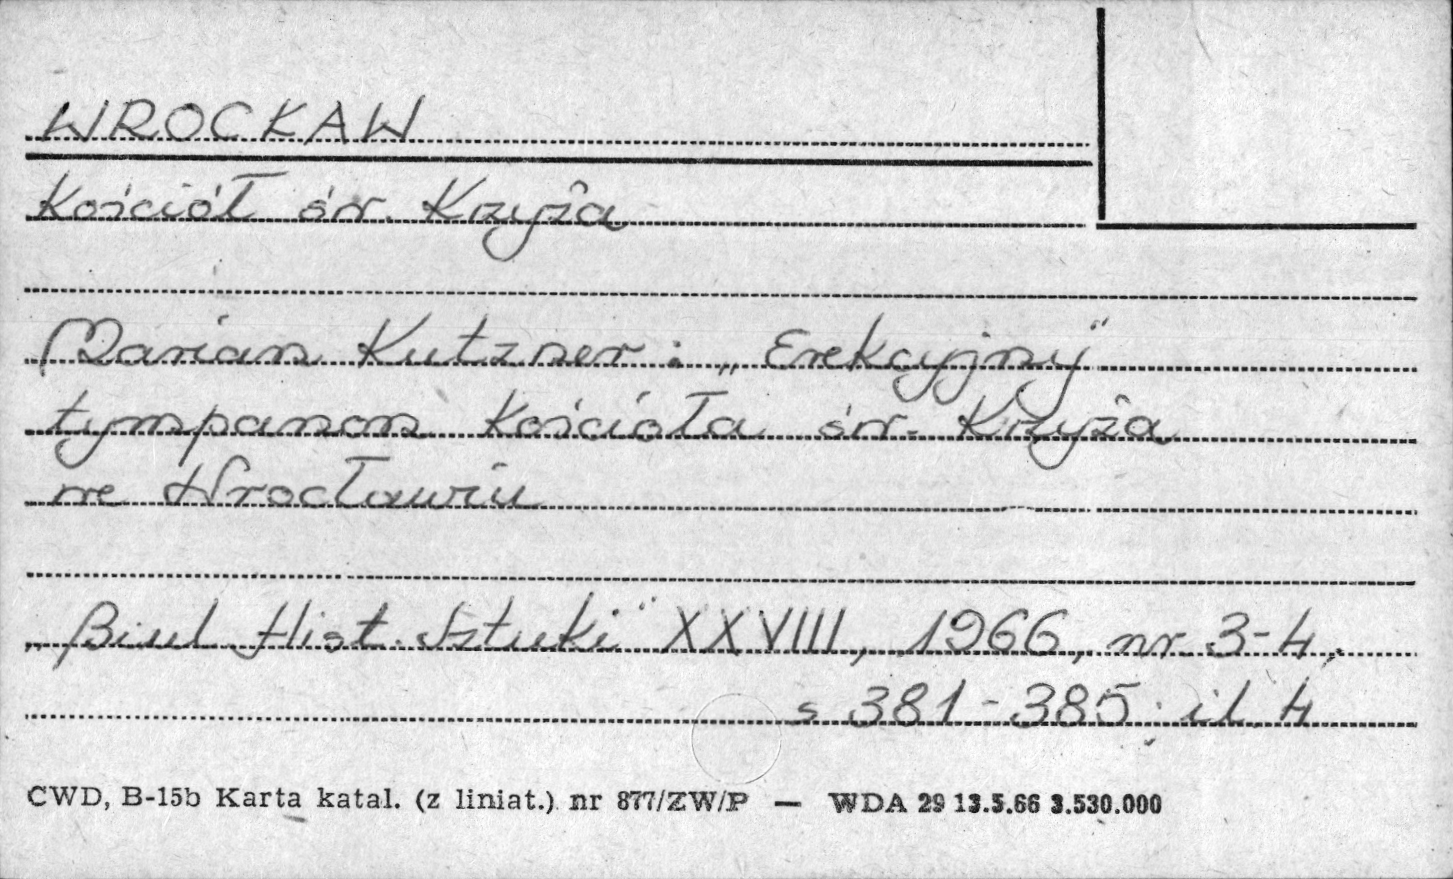 WROCŁAW
Kościół św. Krzyża
Marian Kutzner : „Erekcyjny"
tympanon kościoła św. Krzyża
we Wrocławiu
„Biul Hist. Sztuki" XXVIII, 1966, nr 3-4,
s 381-385; il. 4
CWD, B-15b Karta katal. (z liniat.) nr 877/ZW/P — WDA 29 13.5.66 3.530.000